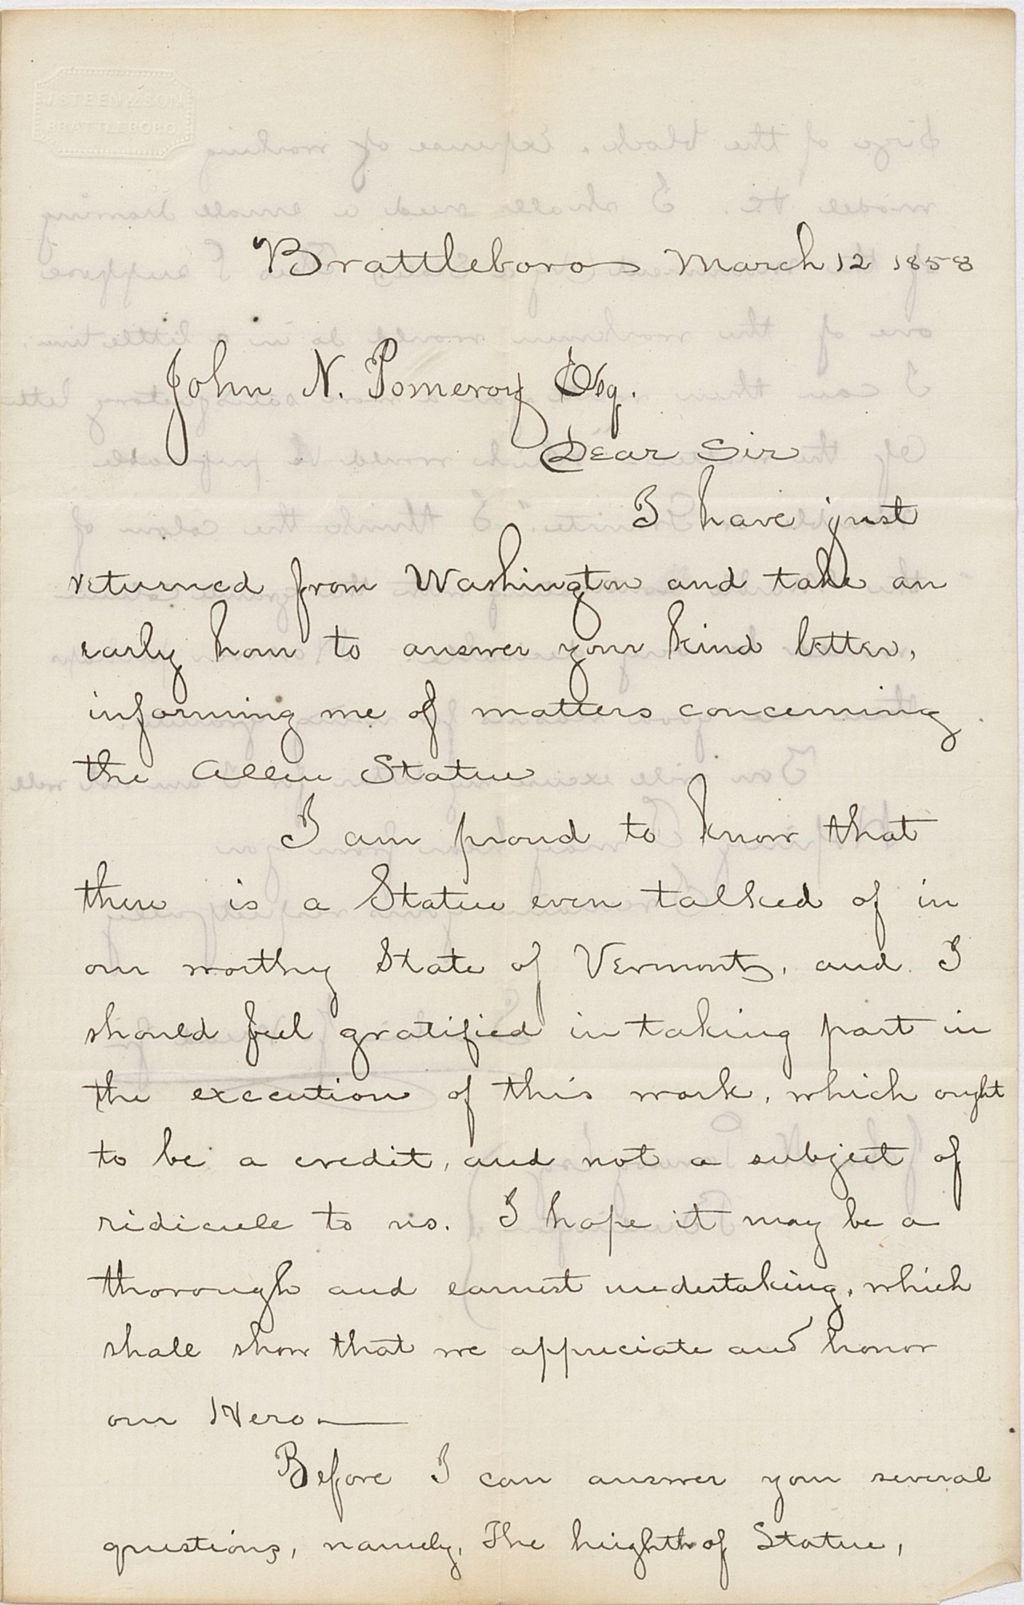 J STEEN & SON
BRATTLEBORO
Brattleboro March 12 1858
John N. Pomeroy Esq.
Dear Sir
I have just
returned from Washington and take an
early hour to answer your kind letter,
informing me of matters concerning
the Allen Statue
I am proud to know that
there is a Statue even talked of in
our worthy State of Vermont, and I
should feel gratified in taking part in
the execution of this work, which ought
to be a credit, and not a subject of
ridicule to us. I hope it may be a
thorough and earnest undertaking, which
shall show that we appreciate and honor
our Hero —
Before I can answer your several
questions, namely, The heighth of Statue,